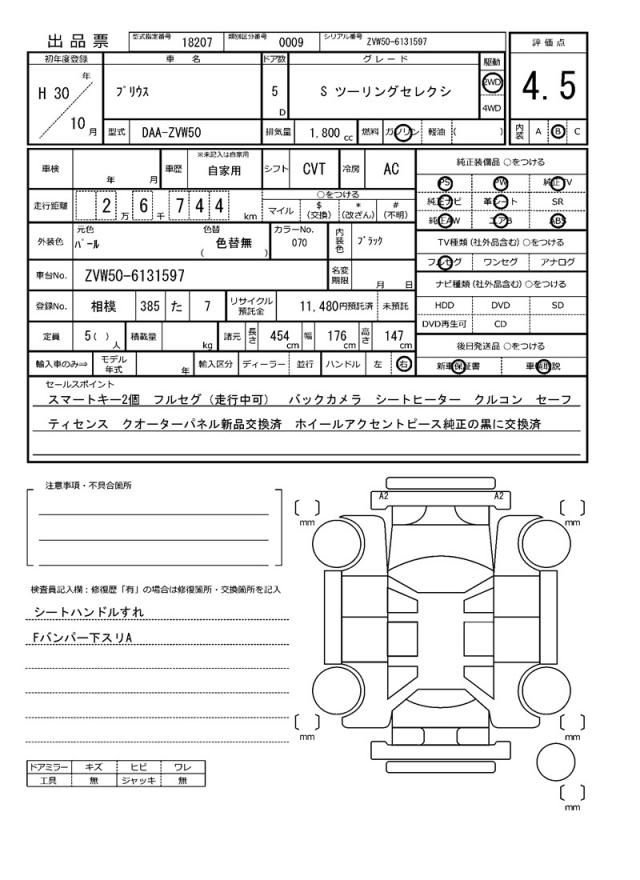 出品票 型式指定番号 18207 類別区分番号 0009 シリアル番号 ZVW50-6131597
初年度登録 車名 ドア数 グレード 駆動 評価点
H 30 年 10 月 プリウス 5 D S ツーリングセレクシ 2WD 4WD 4.5
型式 DAA-ZVW50 排気量 1.800 cc 燃料 ガソリン 軽油 ( ) 内装 A B C
車検 年 月 車歴 ※未記入は自家用 自家用 シフト CVT 冷房 AC 純正装備品 ○をつける
PS PW 純正TV
走行距離 2 万 6 千 7 4 4 km ○をつける マイル $(交換) *(改ざん) #(不明) 純正ナビ 革シート SR
純正AW エアB ABS
外装色 元色 パール 色替 ( 色替無 ) カラーNo. 070 内装色 ブラック TV種類 (社外品含む) ○をつける
フルセグ ワンセグ アナログ
車台No. ZVW50-6131597 名変期限 月 日 ナビ種類 (社外品含む) ○をつける
登録No. 相模 385 た 7 リサイクル預託金 11,480円預託済 未預託 HDD DVD SD
DVD再生可 CD
定員 5( ) 人 積載量 kg 諸元 長さ 454 cm 幅 176 cm 高さ 147 cm 後日発送品 ○をつける
輸入車のみ⇒ モデル年式 年 輸入区分 ディーラー 並行 ハンドル 左 右 新車保証書 車輌取説
セールスポイント
スマートキー2個 フルセグ(走行中可) バックカメラ シートヒーター クルコン セーフ
ティセンス クオーターパネル新品交換済 ホイールアクセントピース純正の黒に交換済
注意事項・不具合箇所
A2 A2
mm mm
検査員記入欄:修復歴「有」の場合は修復箇所・交換箇所を記入
シートハンドルすれ
Fバンパー下スリA
mm mm
ドアミラー キズ ヒビ ワレ
工具 無 ジャッキ 無
mm